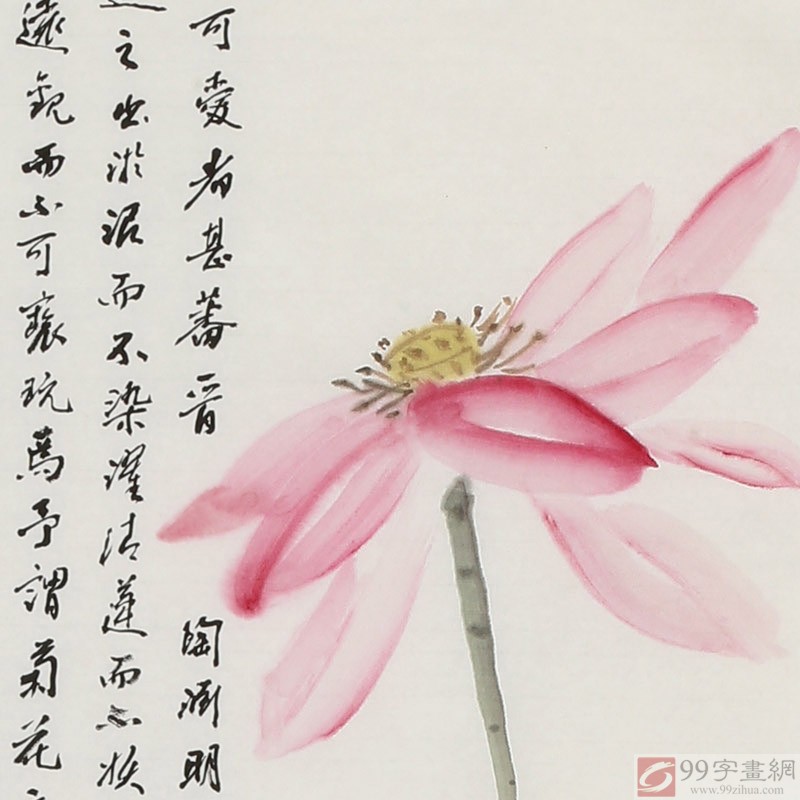 可愛者甚蕃晋
陶淵明
之出淤泥而不染濯清蓮而不妖
遠觀而不可褻玩焉予謂菊花
99字畫網
www.99zihua.com